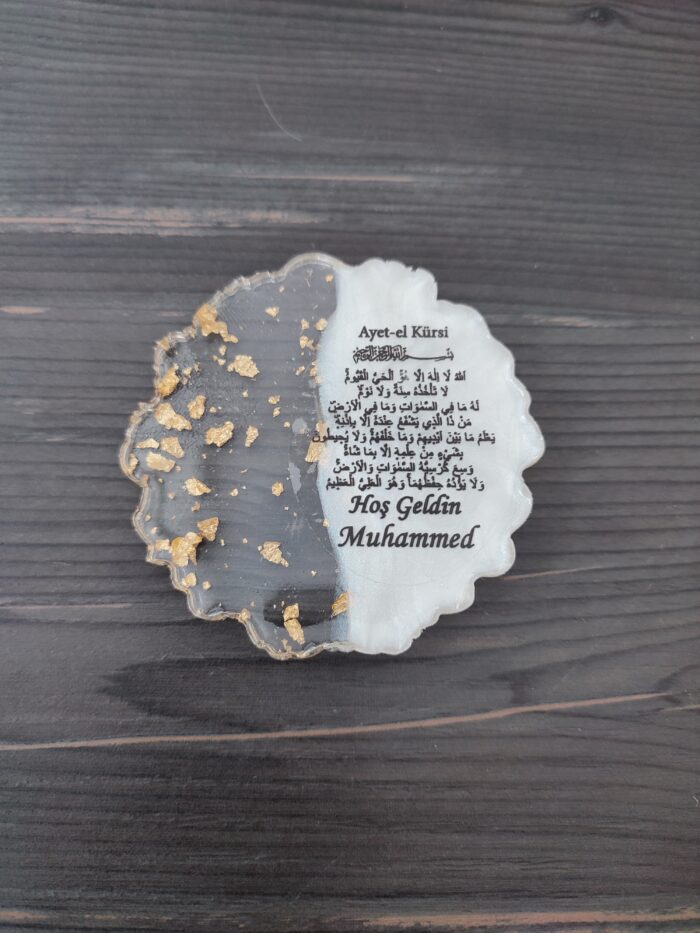 Ayet-el Kürsi
بسم الله الرحمن الرحيم
اَللّٰهُ لَا اِلٰهَ اِلَّا هُوَ اَلْحَيُّ الْقَيُّومُ
لَا تَأْخُذُهُ سِنَةٌ وَلَا نَوْمٌ
لَهُ مَا فِي السَّمٰوَاتِ وَمَا فِي الْاَرْضِ
مَنْ ذَا الَّذِي يَشْفَعُ عِنْدَهُ اِلَّا بِاِذْنِهِ
يَعْلَمُ مَا بَيْنَ اَيْدِيهِمْ وَمَا خَلْفَهُمْ وَلَا يُحِيطُونَ
بِشَيْءٍ مِنْ عِلْمِهِ اِلَّا بِمَا شَاءَ
وَسِعَ كُرْسِيُّهُ السَّمٰوَاتِ وَالْاَرْضَ
وَلَا يَؤُدُهُ حِفْظُهُمَا وَهُوَ الْعَلِيُّ الْعَظِيمُ
Hoş Geldin
Muhammed